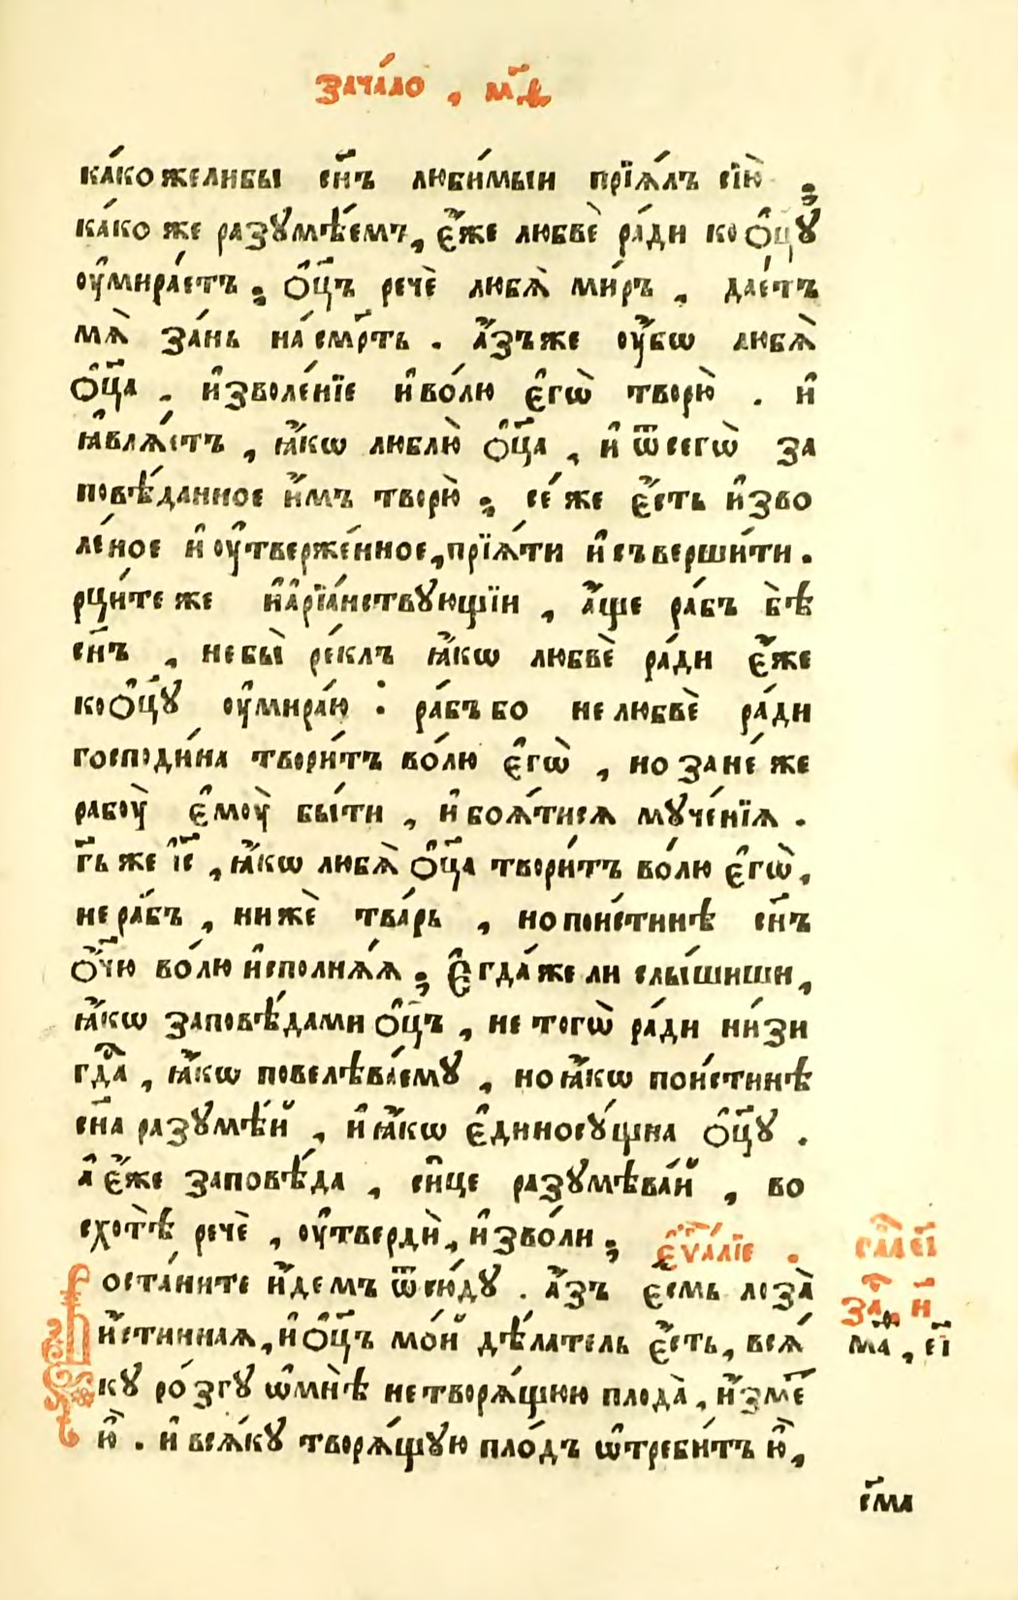 зача́ло , м҃ѳ
ка́ко желибы сн҃ъ любимыи прїѧ́лъ сїю̀ ;
ка́ко же разꙋмѣ́емъ, є҆́же любвѐ ра́ди ко ѻ҆ц҃ꙋ
оу҆мира́етъ ; ѻ҆ц҃ъ речѐ любѧ̀ ми́ръ , дае́тъ
мѧ̀ за́нь на́ смр҃ть . а҆́зъже оу҆́бѡ любѧ̀
ѻ҆ц҃а . и҆зволе́нїе и҆во́лю є҆гѡ̀ творю̀ . и҆
ꙗ҆влѧ́етъ , ꙗ҆́кѡ люблю̀ ѻ҆ц҃а , и҆ ѿсегѡ̀ за
повѣ́данное и҆́мъ творю̀ ; се́ же є҆́сть и҆зво
ле́ное и҆ оу҆тверже́нное , прїѧ́ти и҆ съверши́ти .
рцы́те же и҆ а҆рїа́нствꙋющїи , а҆́ще ра́бъ бѣ̀
сн҃ъ , не бы̀ ре́клъ ꙗ҆́кѡ любвѐ ра́ди є҆́же
ко ѻ҆ц҃ꙋ оу҆мира́ю : ра́бъ бо не любвѐ ра́ди
господи́на твори́тъ во́лю є҆гѡ̀ , но зане́ же
рабоу̀ є҆моу̀ бы́ти , и҆ боѧ́тисѧ мꙋче́нїѧ .
гд҃ь же і҆с҃ , ꙗ҆́кѡ любѧ̀ ѻ҆ц҃а твори́тъ во́лю є҆гѡ̀ ,
не ра́бъ , ни жѐ тва́рь , но пои́стинѣ сн҃ъ
ѻ҆́ч҃ю во́лю и҆сполнѧ́ѧ ; Є҆гда́ же ли слы́шиши ,
ꙗ҆́кѡ заповѣ́дами ѻ҆ц҃ъ , не тогѡ̀ ра́ди ни́зи
гд҃а , ꙗ҆́кѡ повелѣва́емꙋ , но ꙗ҆́кѡ пои́стинѣ
сн҃а разꙋмѣ́й , и҆ ꙗ҆́кѡ є҆диносꙋ́щна ѻ҆ц҃ꙋ .
а҆ є҆́же заповѣ́да , си҆́це разꙋмѣва́й , во
схотѣ̀ речѐ , оу҆твердѝ , и҆зво́ли ; є҆ѵⷢ҇а́лїе . глⷡ҇а є҃і
Воста́ните и҆́демъ ѿсю́дꙋ . а҆́зъ є҆смь лоза̀ заⷱ҇ , н҃
и҆́стиннаѧ , и҆ ѻ҆ц҃ъ мо́й дѣ́латель є҆́сть , всѧ́ маⷤ , є҃і
кꙋ ро́згꙋ ѡ҆мнѣ̀ не творѧ́щюю плода̀ , и҆́змет
ю҆̀ . и҆ всѧ́кꙋ творѧ́щꙋю пло́дъ ѡ҆треби́тъ ю҆̀ ,